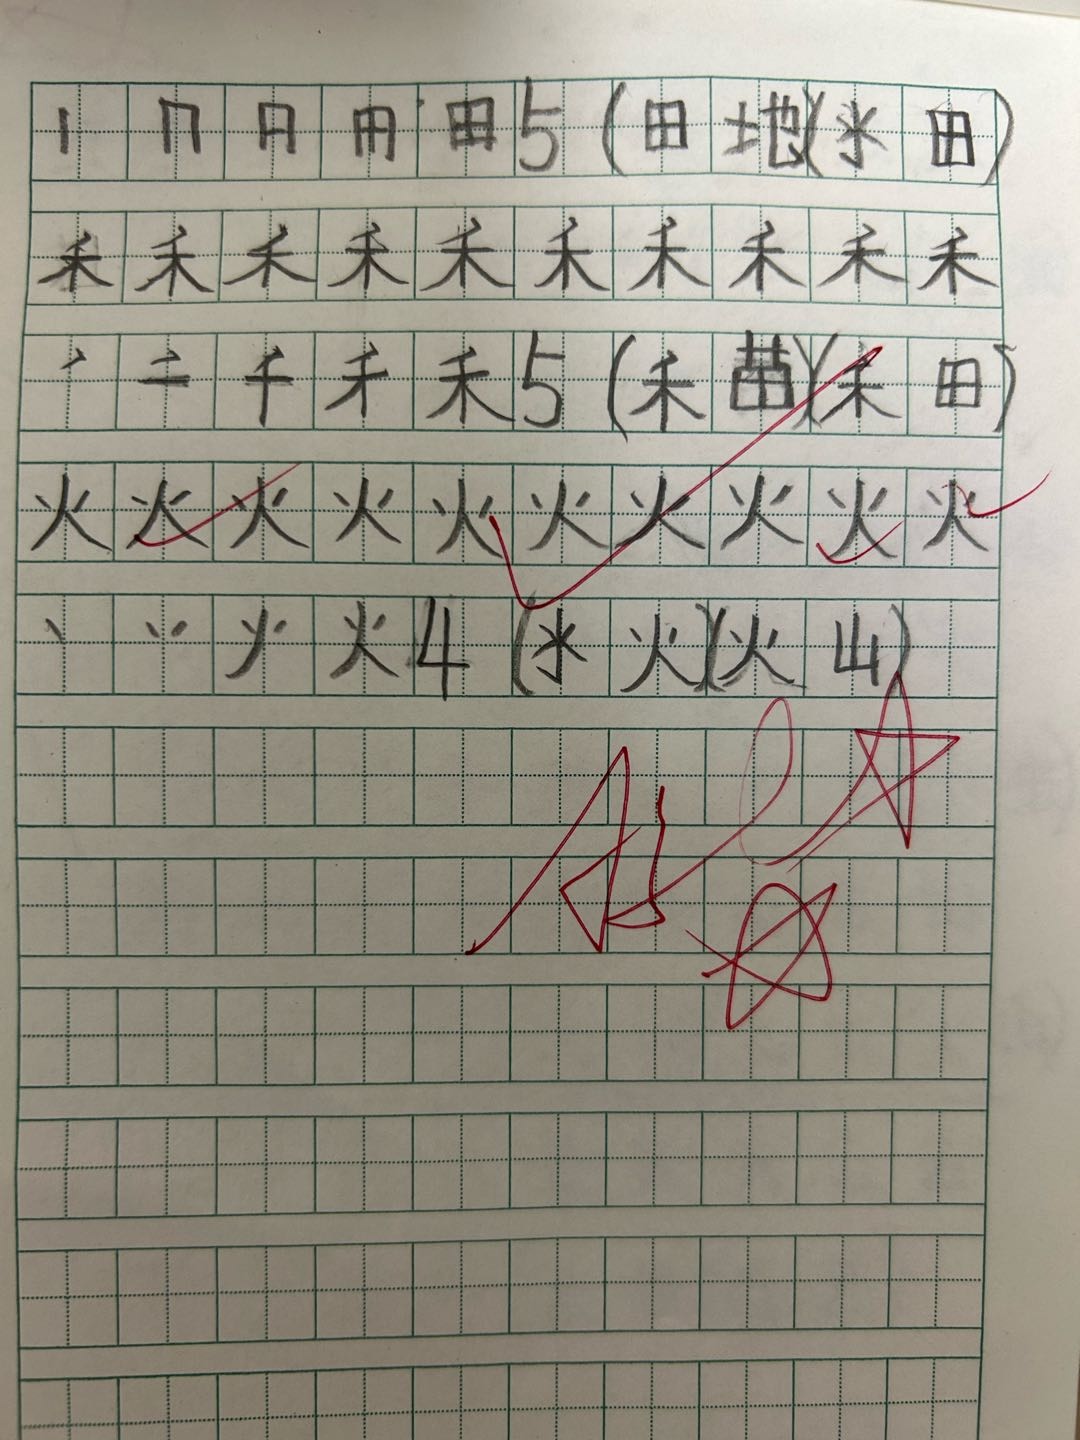 丨 冂 日 田 田 5 (田 地)(水 田)
禾 禾 禾 禾 禾 禾 禾 禾 禾 禾
丿 二 千 禾 禾 5 (禾 苗)(禾 田)
火 火 火 火 火 火 火 火 火 火
丶 丷 少 火 4 (水 火)(火 山)